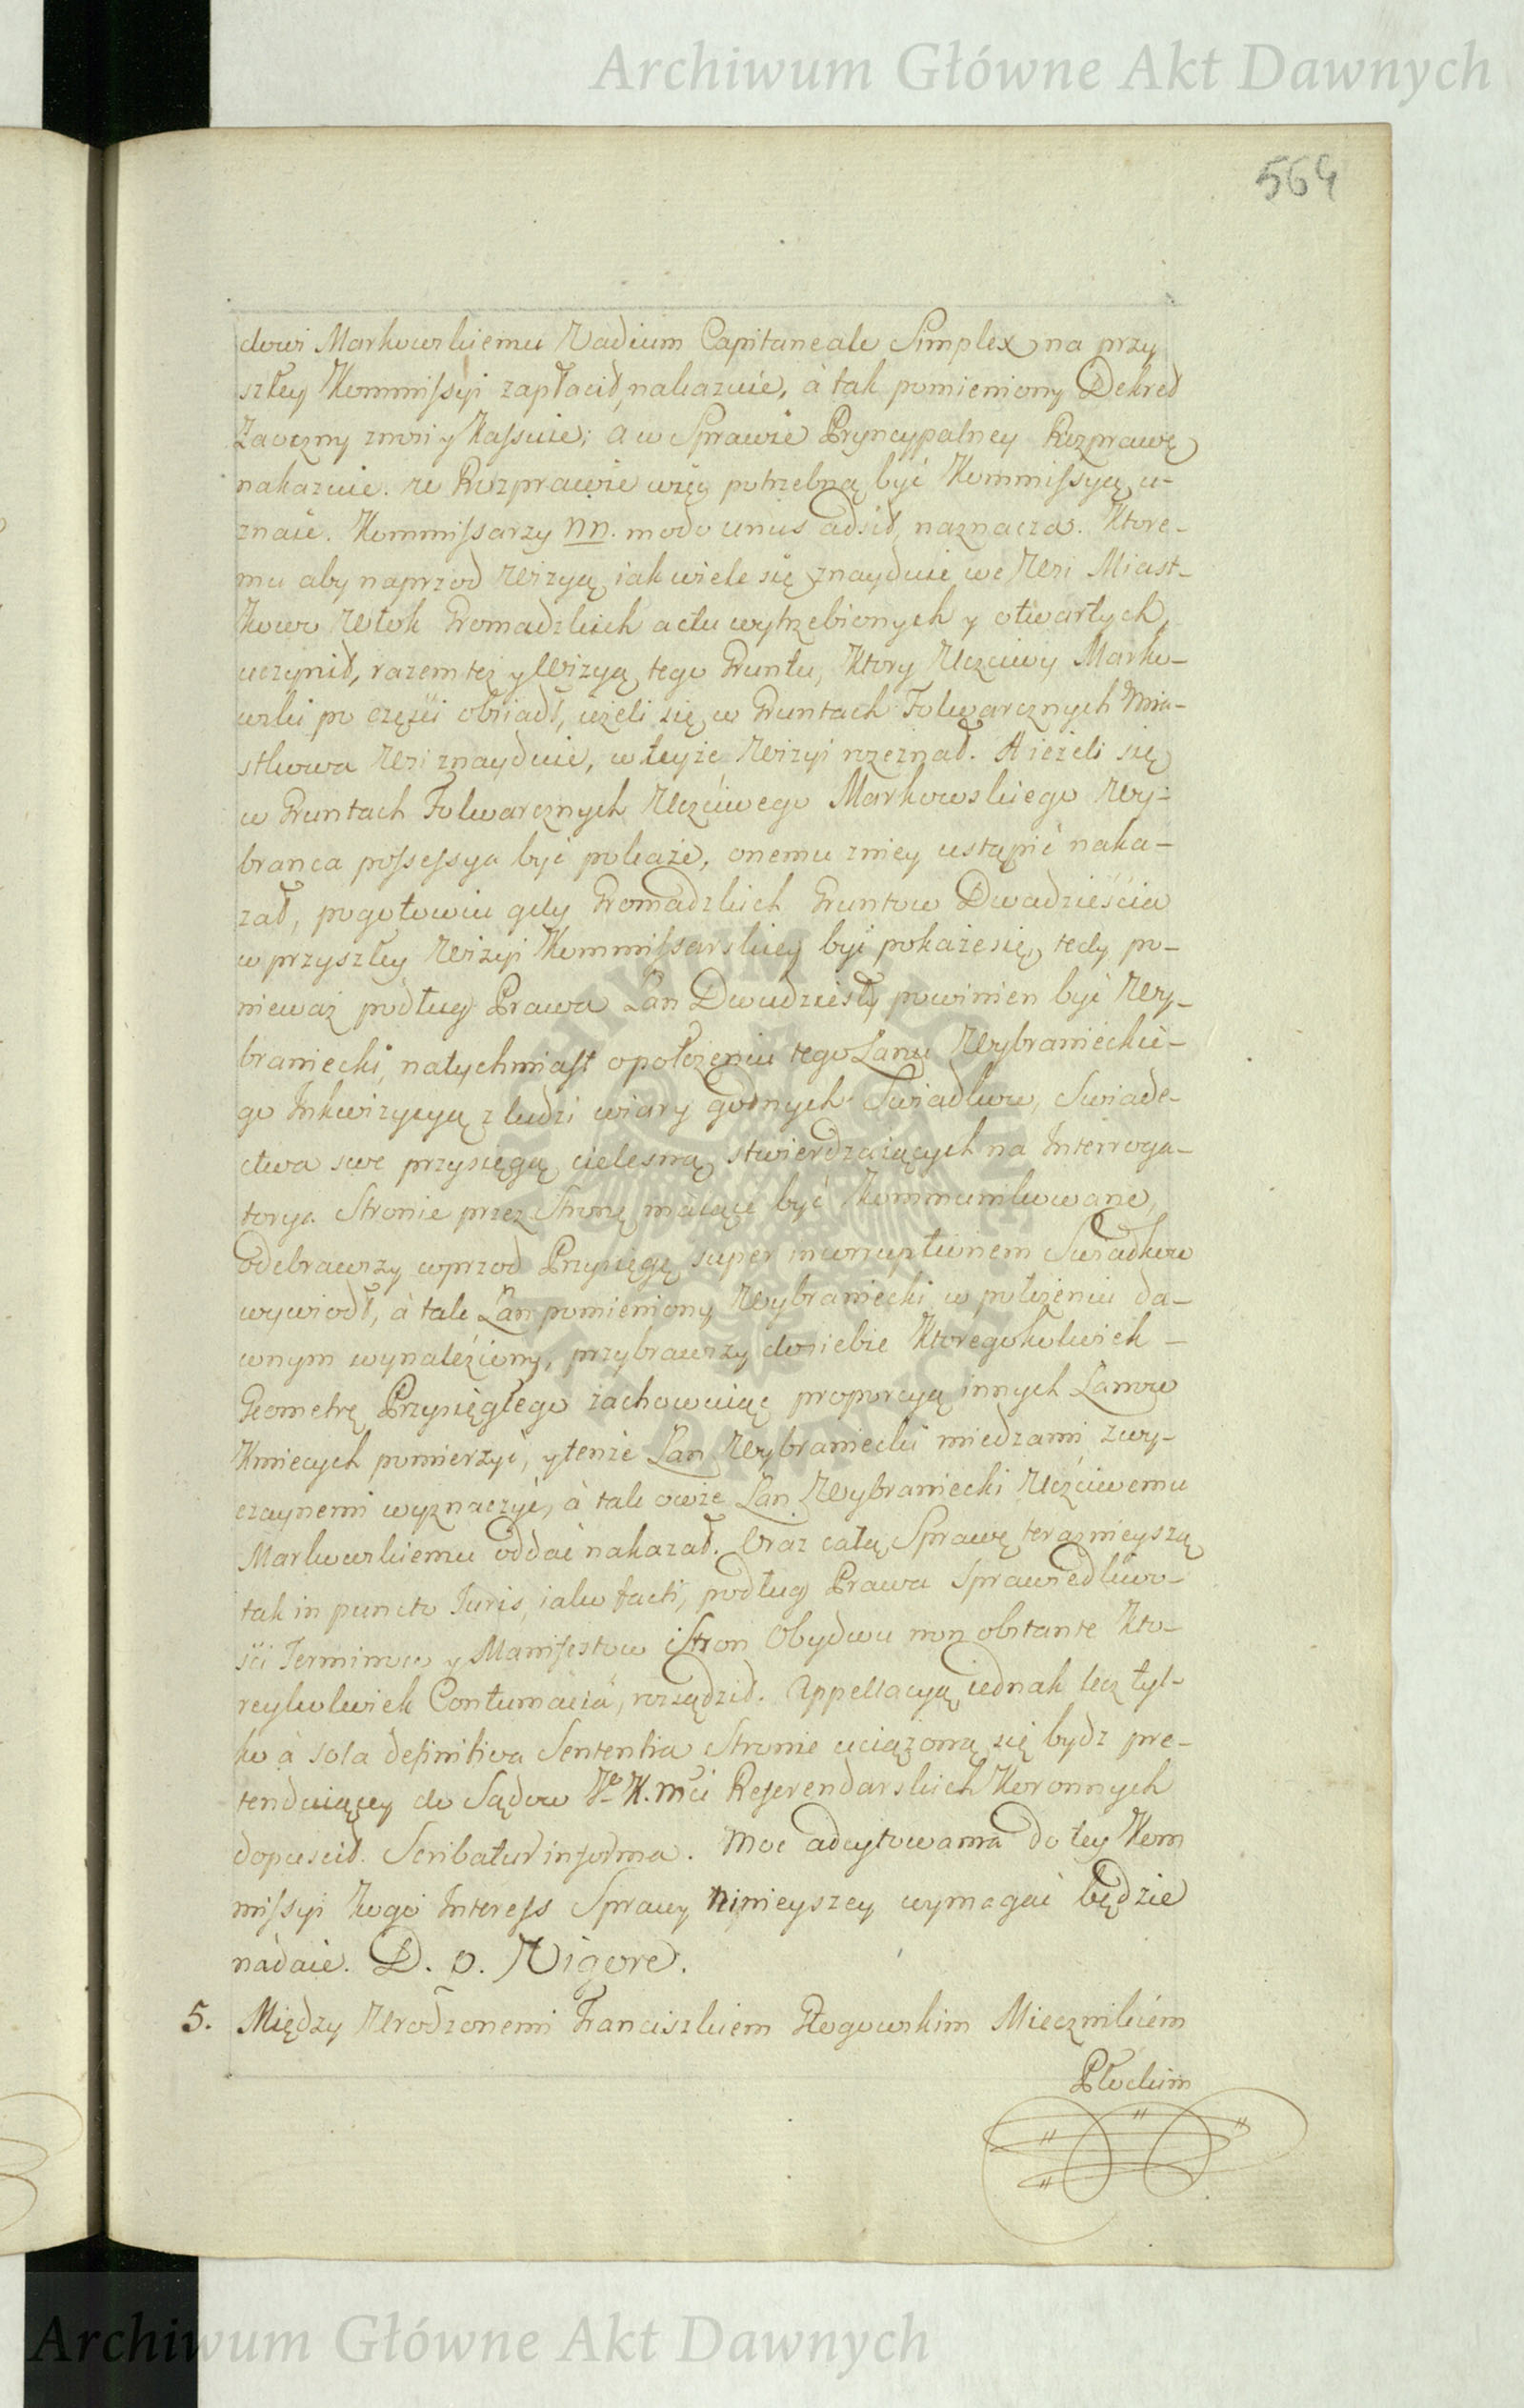 Archiwum Główne Akt Dawnych
564
dowi Markowskiemu Vadium Capitaneale Simplex na przy
szłey Kommissyi zapłacił, nakazuie, à tak pomieniony Dekret
Zaoczny znosi y Kassuie; a w Sprawie Pryncypalney Rozprawę
nakazuie. W Rozprawie więc potrzebną być Kommissyą u-
znaie. Kommissarzy nn. modo unus adsit, naznacza. Ktore-
mu aby naprzod Wizyą iak wiele się znayduie we Wsi Miast-
kowo Włok Gromadzkich actu wytrzebionych y otwartych,
uczynił, razem też y Wizyą tego Gruntu, Ktory Uczciwy Marko-
wski po części obsiadł, ieżeli się w Gruntach Folwarcznych Mia-
stkowa Wsi znayduie, w teyże Wizyi rozeznał. A ieżeli się
w Gruntach Folwarcznych Uczciwego Markowskiego Wy-
branca possessya być pokaże, onemu z niey ustąpić naka-
zał, pogotowiu gdy Gromadzkich Gruntow Dwadzieścia
w przyszłey Wizyi Kommissarskiey być pokaże się, tedy po-
nieważ podług Prawa Łan Dwudziesty powinien być Wy-
braniecki, natychmiast o położeniu tego Łanu Wybranieckie-
go Inkwizycyą z ludzi wiary godnych Swiadkow, Swiade-
ctwa swe przysięgą cielesną stwierdzaiących na Interroga-
torya Stronie przez Stronę maiące być Kommunikowane,
odebrawszy wprzod Przysięgę super incorruptionem Swiadkow
wywiodł, à tak Łan pomieniony Wybraniecki w położeniu da-
wnym wynaleziony, przybrawszy do siebie Ktoregokolwiek
Geometrę Przysięgłego zachowuiąc proporcyą innych Łanow
Kmiecych pomierzyć, y tenże Łan Wybraniecki miedzami zwy-
czaynemi wyznaczyć, à tak owże Łan Wybraniecki Uczciwemu
Markowskiemu oddać nakazał. Oraz całą Sprawę teraznieyszą
tak in puncto Juris, iako facti, podług Prawa Sprawiedliwo-
ści Terminow y Manifestow Stron Obydwu non obstante Kto-
reykolwiek Contumacia, rozsądził. Appellacyą iednak lecz tyl-
ko à sola definitiva Sententia Stronie uciążoną się bydz pre-
tenduiącey do Sądow J. K. Mci Referendarskich Koronnych
dopuscił. Scribatur in forma. Moc adcytowania do tey Kom
missyi Kogo Interess Sprawy ninieyszey wymagać będzie
nadaie. D. o. Vigore.
5. Między Urodzonemi Franciszkiem Głogowskim Miecznikiem
Płockim
Archiwum Główne Akt Dawnych